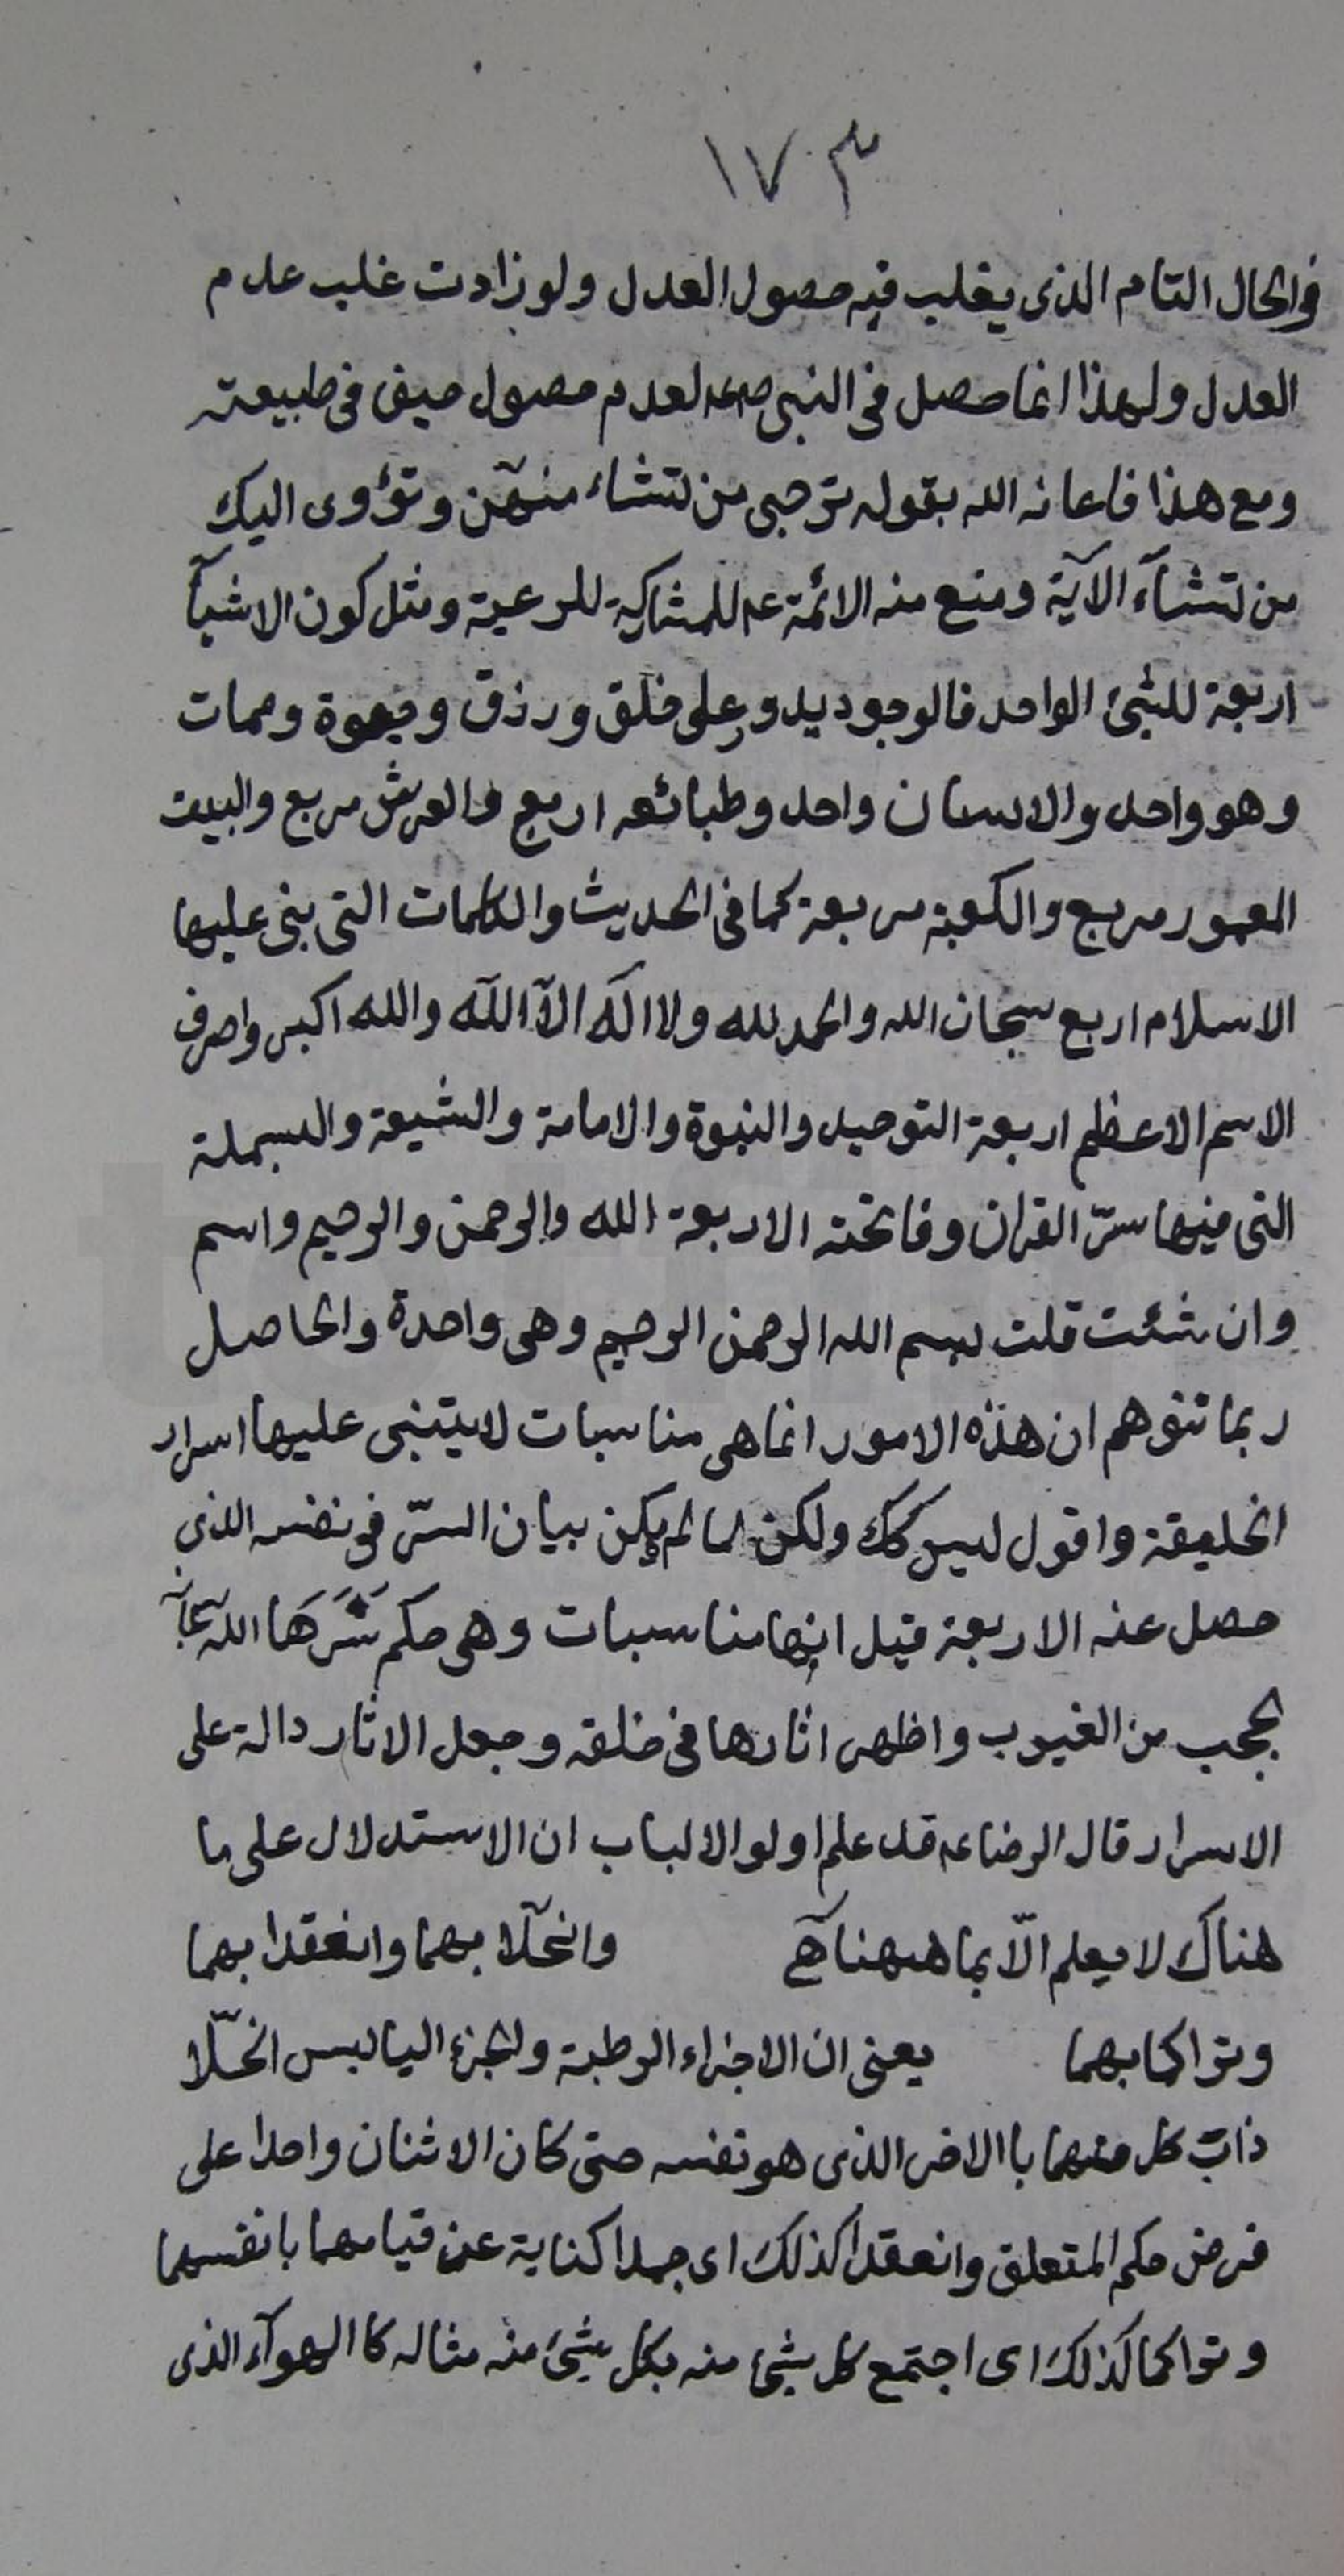 ١٧٣
في الحال التام الذي يغلب فيه حصول العدل ولو زادت غلب عدم
العدل ولهذا انما حصل في النبي صعلعدم حصول حيف في طبيعته
ومع هذا فاعانه الله بقوله ترجى من تشاء منهن وتؤوى اليك
من تشآء الآية ومنع منه الائمة عم للمشاركة للرعية ومثل كون الاشيآ
اربعة للشئ الواحد فالوجود يدور على خلق ورزق وحيوة وممات
وهو واحد والانسان واحد وطبائعه اربع والعرش مربع والبيت
المعمور مربع والكعبة مربعة كما في الحديث والكلمات التي بنى عليها
الاسلام اربع سبحان الله والحمد لله ولا اله الّا اللّه والله اكبر واحرف
الاسم الاعظم اربعة التوحيد والنبوة والامامة والشيعة والبسملة
التى فيها سرّ القران وفاتحته الاربعة الله والرحمن والرحيم واسم
وان شئت قلت بسم الله الرحمن الرحيم وهى واحدة والحاصل
ربما تتوهم ان هذه الامور انما هى مناسبات لا يبتنى عليها اسرار
الخليقة واقول ليس كك ولكن لما لم يكن بيان السّر في نفسه الذي
حصل عنه الاربعة قيل انها مناسبات وهى حكم سَتَرَهَا اللّه
بحجب من الغيوب واظهر اثارها في خلقه وجعل الاثار دالة على
الاسرار قال الرضا عم قد علم اولو الالباب ان الاستدلال على ما
هناك لا يعلم الّا بما هيهنا آه وانحلّا بهما وانعقدا بهما
وتراكما بهما يعنى ان الاجزاء الرطبة والجزء اليابس انحلّا
ذاب كل منهما باالاخر الذى هو نفسه حتى كان الاثنان واحدا على
فرض حكم المتعلق وانعقدا كذلك اى جمدا كناية عن قيامهما بانفسهما
وتراكما كذلك اى اجتمع كل شئ منه بكل شئ منه مثاله كا الهوآء الذى